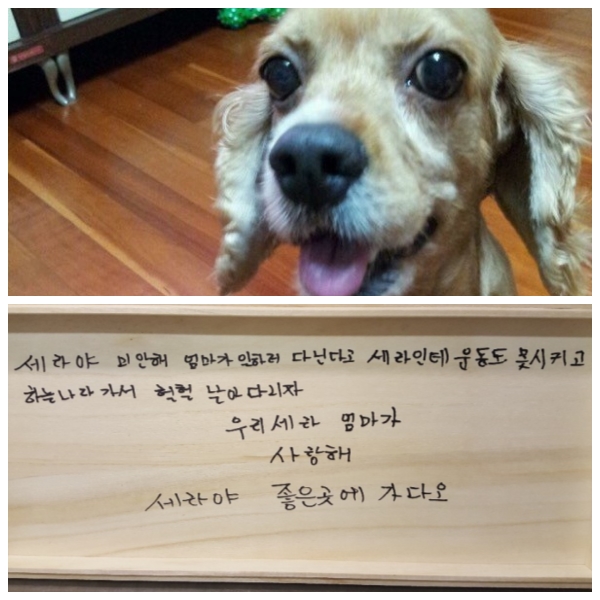 세라야 미안해 엄마가 일하러 다닌다고 세라인테 운동도 못시키고
하늘나라 가서 훨훨 날아다리자
우리세라 엄마가
사랑해
세라야 좋은곳에 가다오